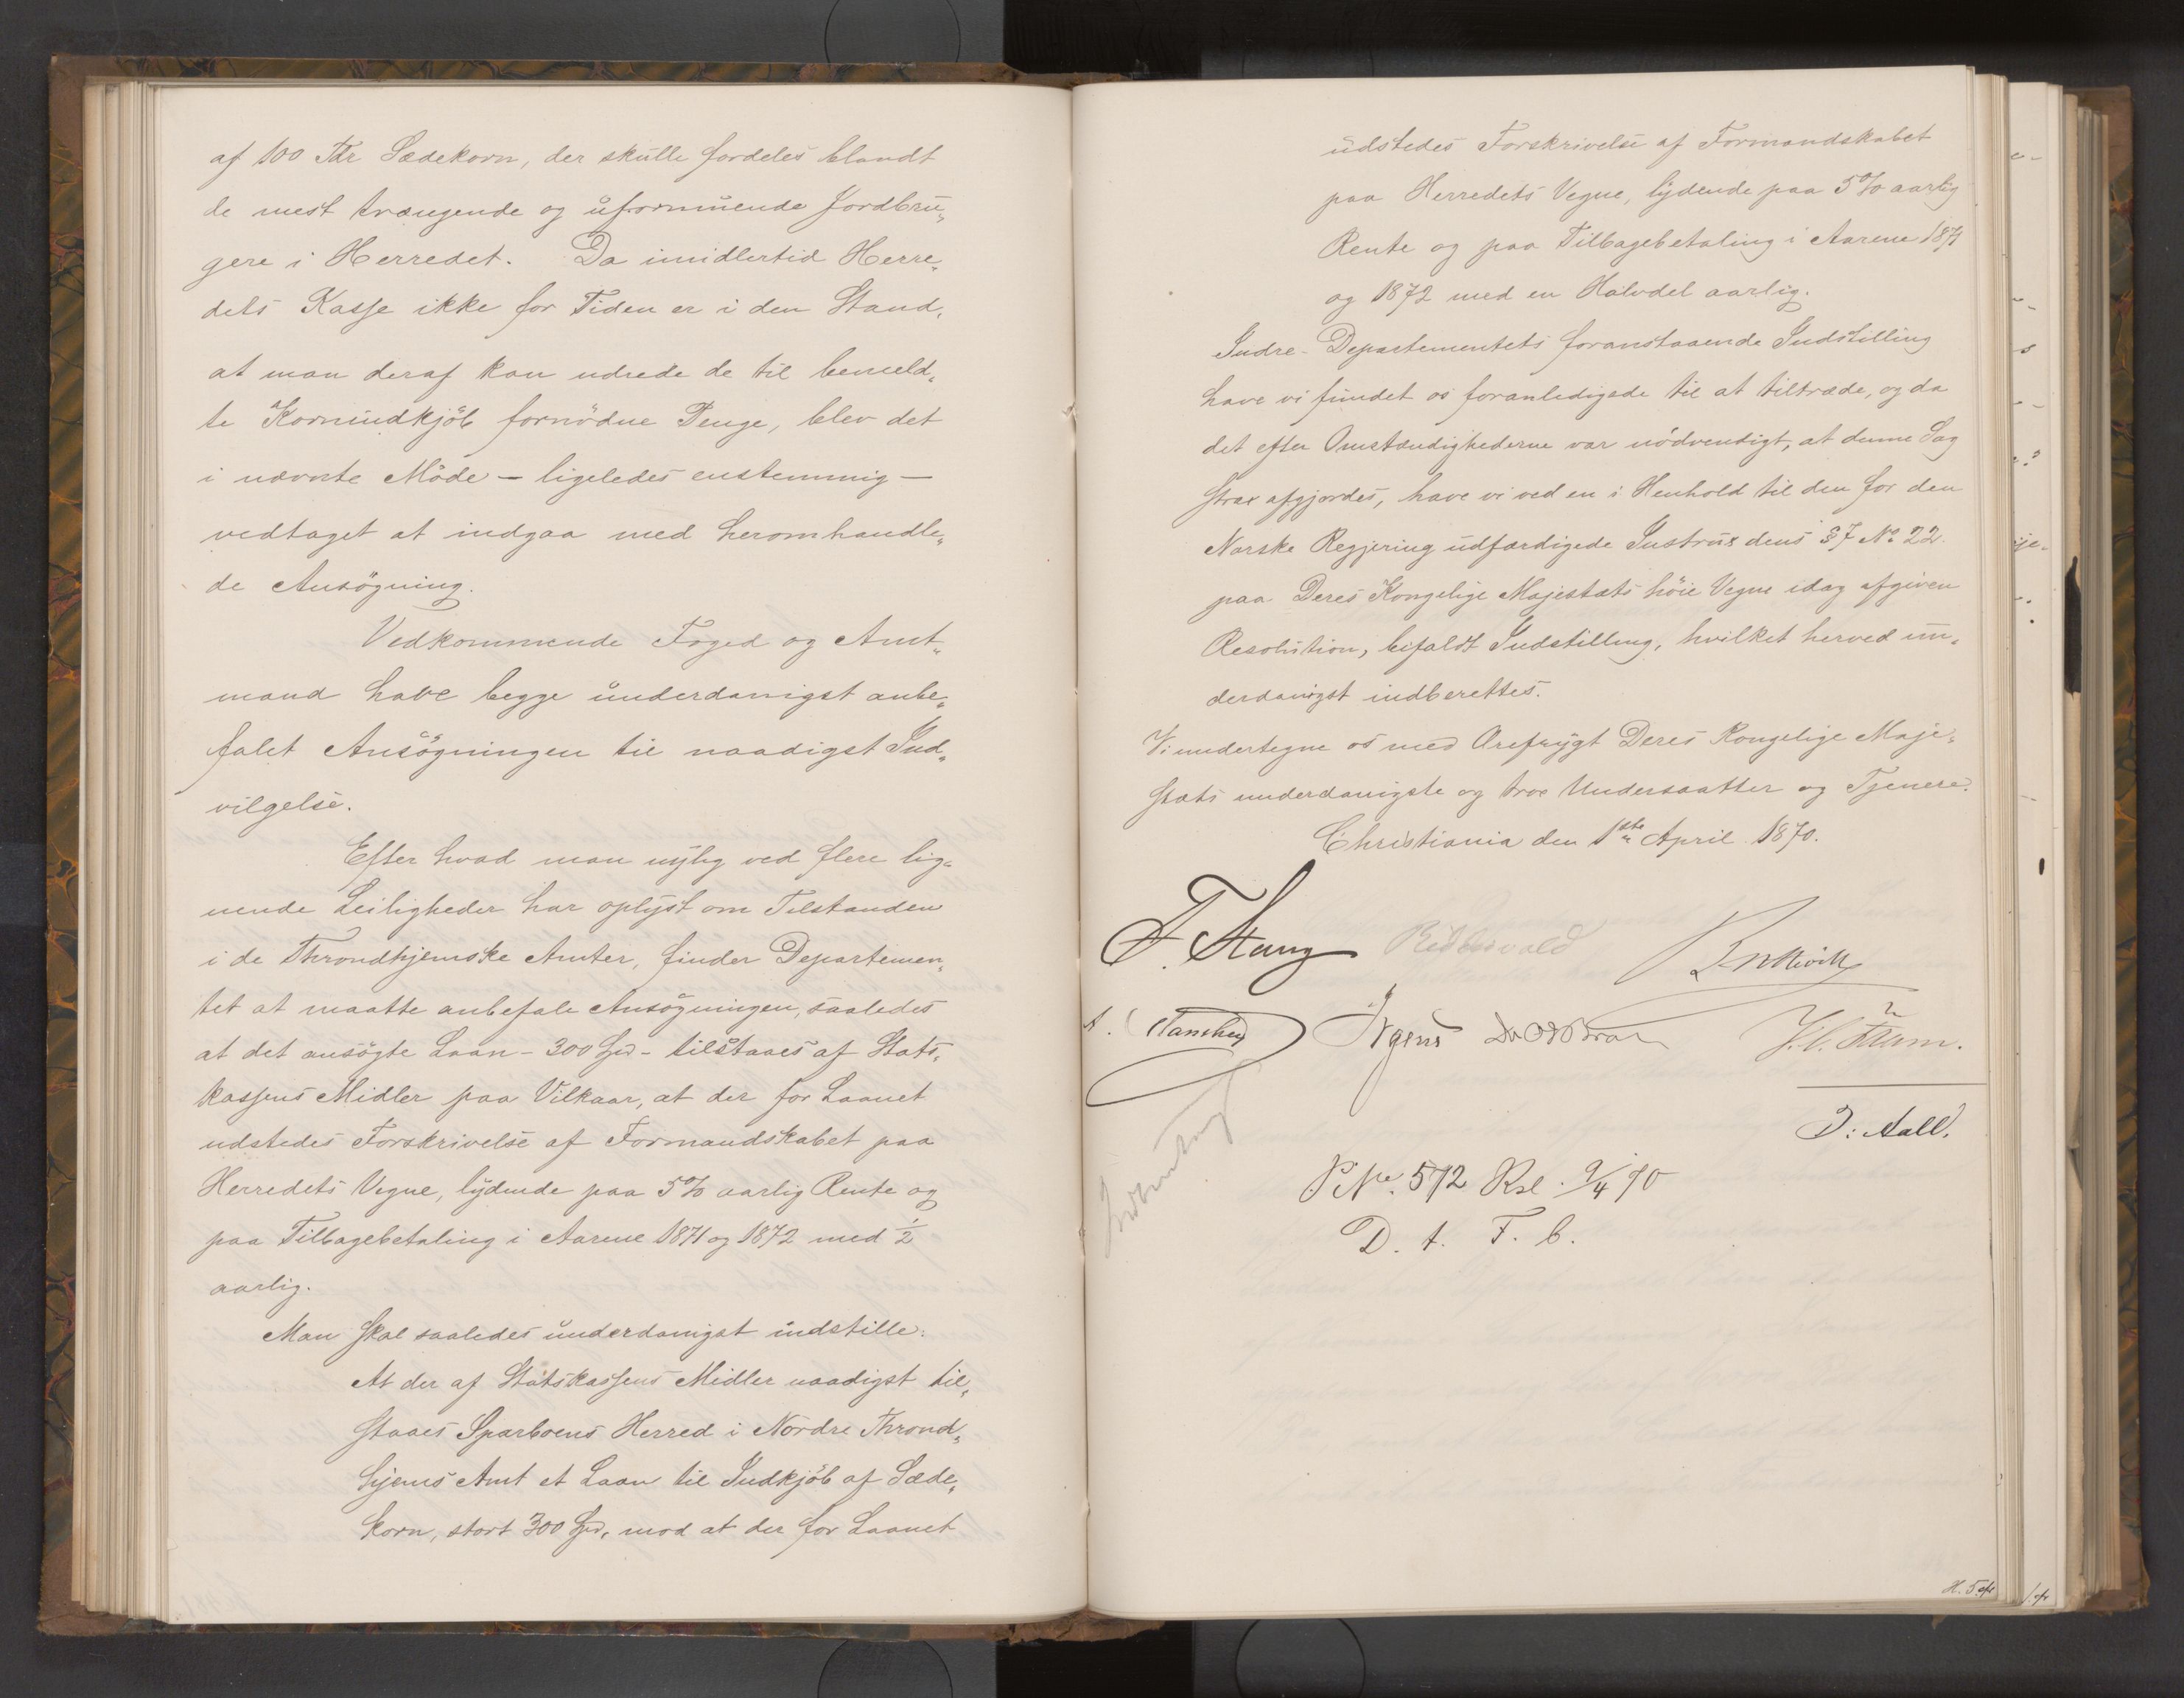 af 100 Tdr Sædekorn, der skulle fordeles blandt
de mest trængende og uformuende Jordbru„
gere i Herredet. Da imidlertid Herre„
dets Kasse ikke for Tiden er i den Stand,
at man deraf kan udrede de til bemeld„
te Kornindkjöb fornödne Penge, blev det
i nævnte Möde – ligeledes enstemmig –
vedtaget at indgaa med heromhandle„
de Ansögning.
Vedkommende Foged og Amt„
mand have begge underdanigst anbe„
falet Ansögningen til naadigst Ind„
vilgelse.
Efter hvad man nylig ved flere lig„
nende Leiligheder har oplyst om Tilstanden
i de Throndhjemske Amter, finder Departemen„
tet at maatte anbefale Ansögningen, saaledes
at det ansögte Laan – 300 Spd – tilstaaes af Stats„
kassens Midler paa Vilkaar, at der for Laanet
udstedes Forskrivelse af Formandskabet paa
Herredets Vegne, lydende paa 5% aarlig Rente og
paa Tilbagebetaling i Aarene 1871 og 1872 med ½
aarlig.
Man skal saaledes underdanigst indstille:
At der af Statskassens Midler naadigst til„
staaes Sparboens Herred i Nordre Thrond„
hjems Amt et Laan til Indkjöb af Sæde„
korn, stort 300 Spd, mod at der for Laanet
udstedes Forskrivelse af Formandskabet
paa Herredets Vegne, lydende paa 5% aarlig
Rente og paa Tilbagebetaling i Aarene 1871
og 1872 med en Halvdel aarlig.
Indre-Departementets foranstaaende Indstilling
have vi fundet os foranledigede til at tiltræde, og da
det efter Omstændighederne var nödvendigt, at denne Sag
strax afgjordes, have vi ved en i Henhold til den for den
Norske Regjering udfærdigede Instrux dens § 7 No 22
paa Deres Kongelige Majestæts höie Vegne idag afgiven
Resolution, bifaldt Indstilling, hvilket herved un„
derdanigst indberettes.
Vi undertegne os med Ærefrygt Deres Kongelige Maje„
stæts underdanigste og troe Undersaatter og Tjenere.
Christiania den 1ste April 1870.
F. Stang Riddervold
Irgens
D: Aall.
P. No. 572 Rsl. 9/4 70
D. t. F. b.